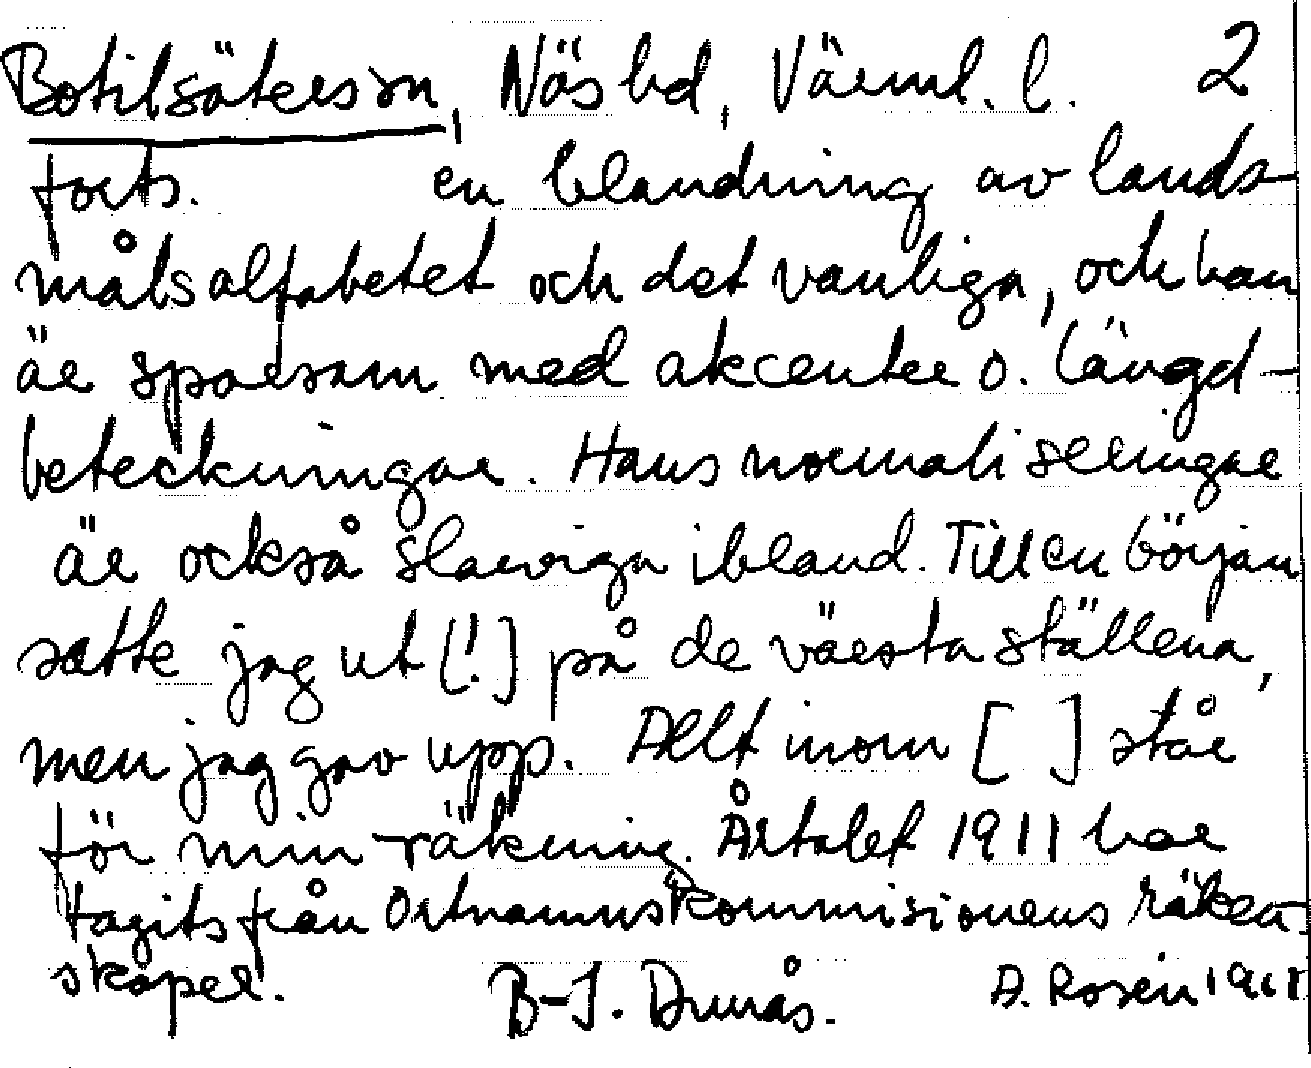 Botilsäters sn, Näs hd, Värml. l. 2
forts. en blandning av lands-
målsalfabetet och det vanliga, och han
är sparsam med akcenter o. längd-
beteckningar. Hans normaliseringar
är också slarviga ibland. Till en början
satte jag ut [!] på de värsta ställena,
men jag gav upp. Allt inom [ ] står
för min räkning. Årtalet 1911 har
tagits från Ortnamnskommisionens räken-
skaper.
B-I. Dunås. A. Rosén